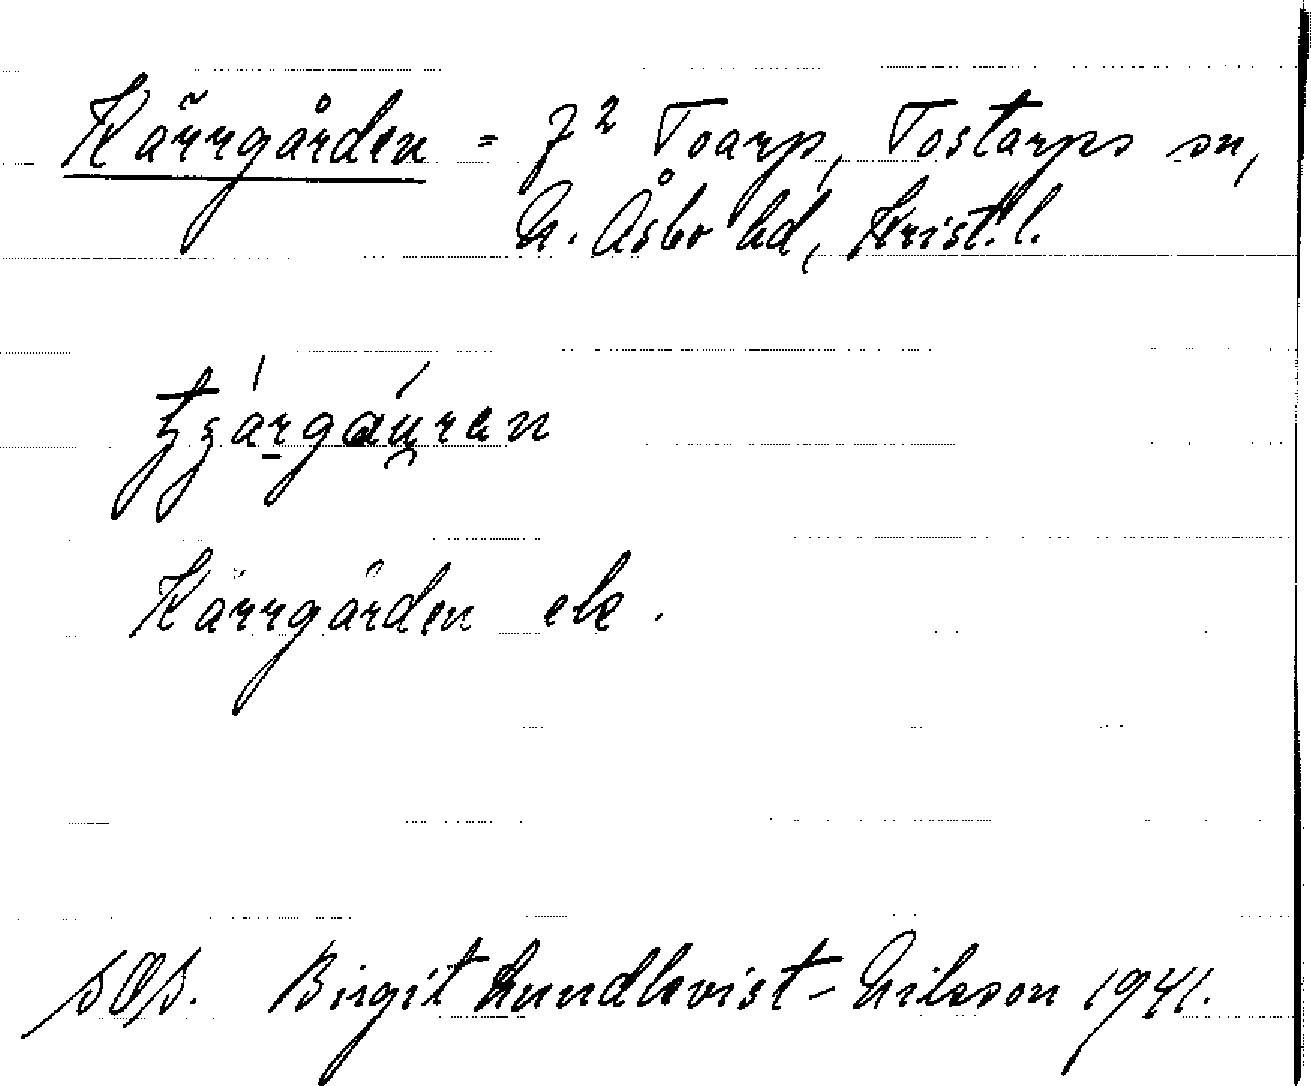 Kärrgården = 7² Toarp, Tostarps sn,
N. Åsbo hd, Krist. l.
Kärrgården ek.
SOS. Birgit Lundkvist-Nilsson 1941.